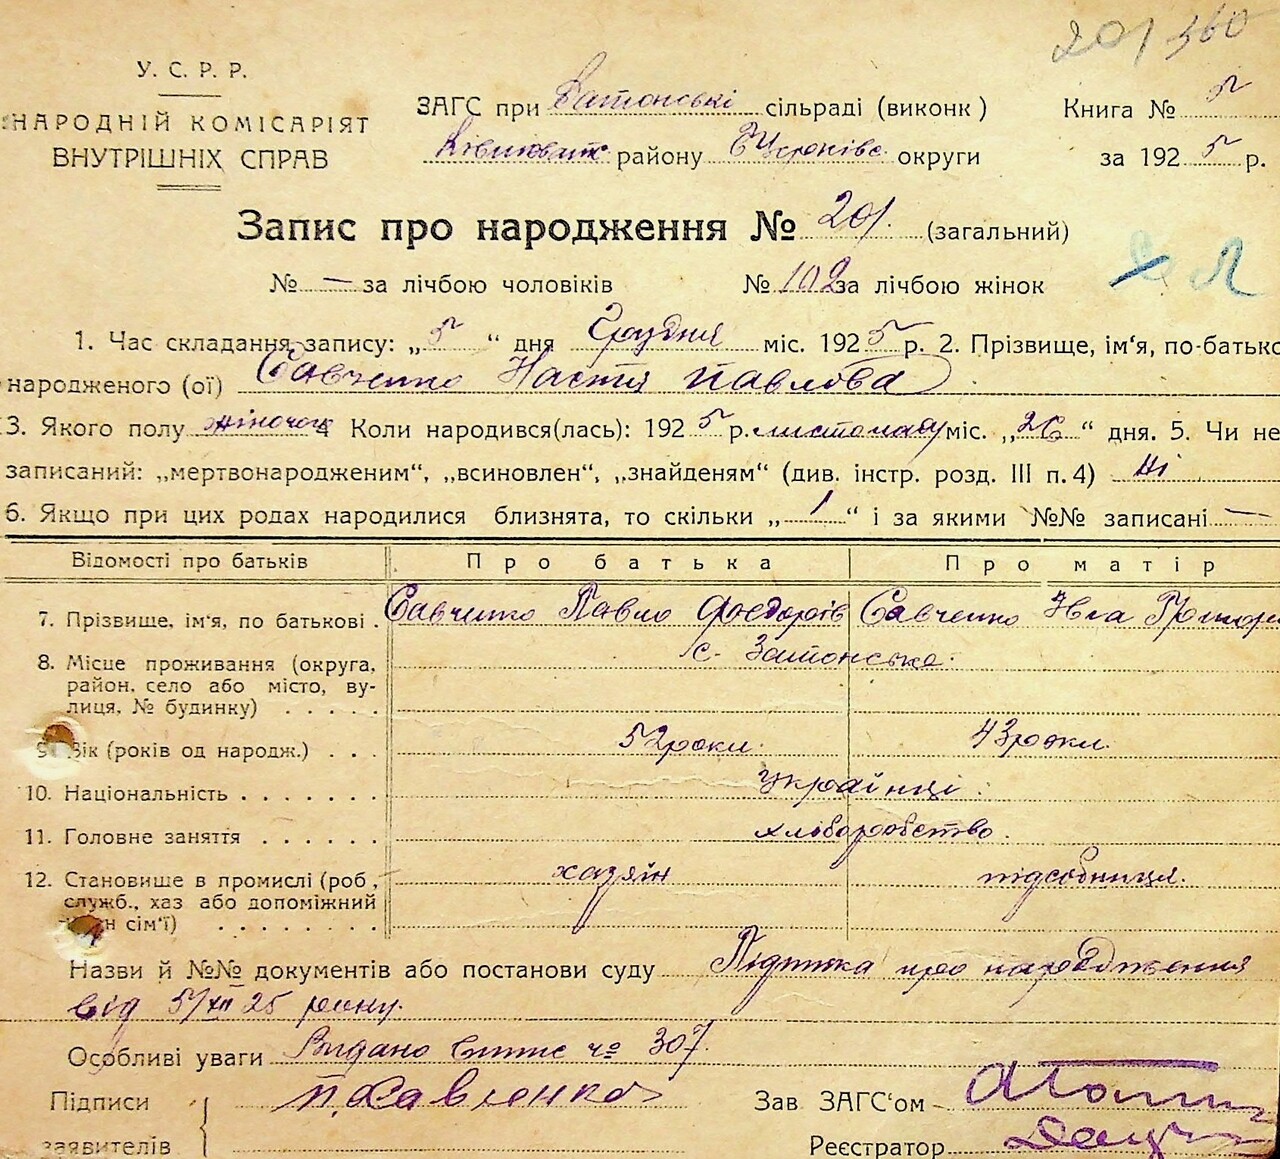 201 360
У. С. Р. Р.
НАРОДНІЙ КОМІСАРІЯТ
ВНУТРІШНІХ СПРАВ
ЗАГС при Затонські сільраді (виконк)
району округи
Книга № 5
за 1925 р.
Запис про народження № 201. (загальний)
№ — за лічбою чоловіків № 102 за лічбою жінок
1. Час складання запису: „5“ дня Грудня міс. 1925 р. 2. Прізвище, ім'я, по-батько
народженого (ої) Савченко Настя Павлова
3. Якого полу жіночого 4 Коли народився(лась): 1925 р. листопаду міс. „26“ дня. 5. Чи не
записаний: „мертвонародженим“, „всиновлен“, „знайденям“ (див. інстр. розд. III п. 4) ні
6. Якщо при цих родах народилися близнята, то скільки „1“ і за якими №№ записані —
Відомості про батьків Про батька Про матір
7. Прізвище, ім'я, по батькові . Савченко Павло Федорів Савченко Ївга Григор
8. Місце проживання (округа, с. Затонське.
район, село або місто, ву-
лиця, № будинку) . . . . .
9. Вік (років од народж.) . . . 52 роки. 43 роки.
10. Національність . . . . . . . українці.
11. Головне заняття . . . . . . хліборобство.
12. Становище в промислі (роб., хазяїн підсобниця.
служб., хаз або допоміжний
член сім'ї) . . . . . . . .
Назви й №№ документів або постанови суду Підписка про народження
від 5/XII 25 року.
Особливі уваги Видано витяг № 307.
Підписи П. Савченко Зав ЗАГС'ом
заявителів Реєстратор